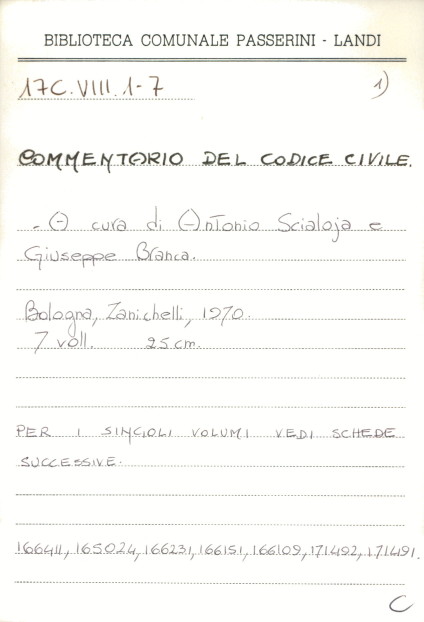 BIBLIOTECA COMUNALE PASSERINI - LANDI
17C.VIII.1-7 1)
COMMENTARIO DEL CODICE CIVILE.
- A cura di Antonio Scialoja e
Giuseppe Branca.
Bologna, Zanichelli, 1970.
7 voll. 25 cm.
PER I SINGOLI VOLUMI VEDI SCHEDE
SUCCESSIVE.
166411, 165024, 166231, 166151, 166109, 171492, 171491.
C